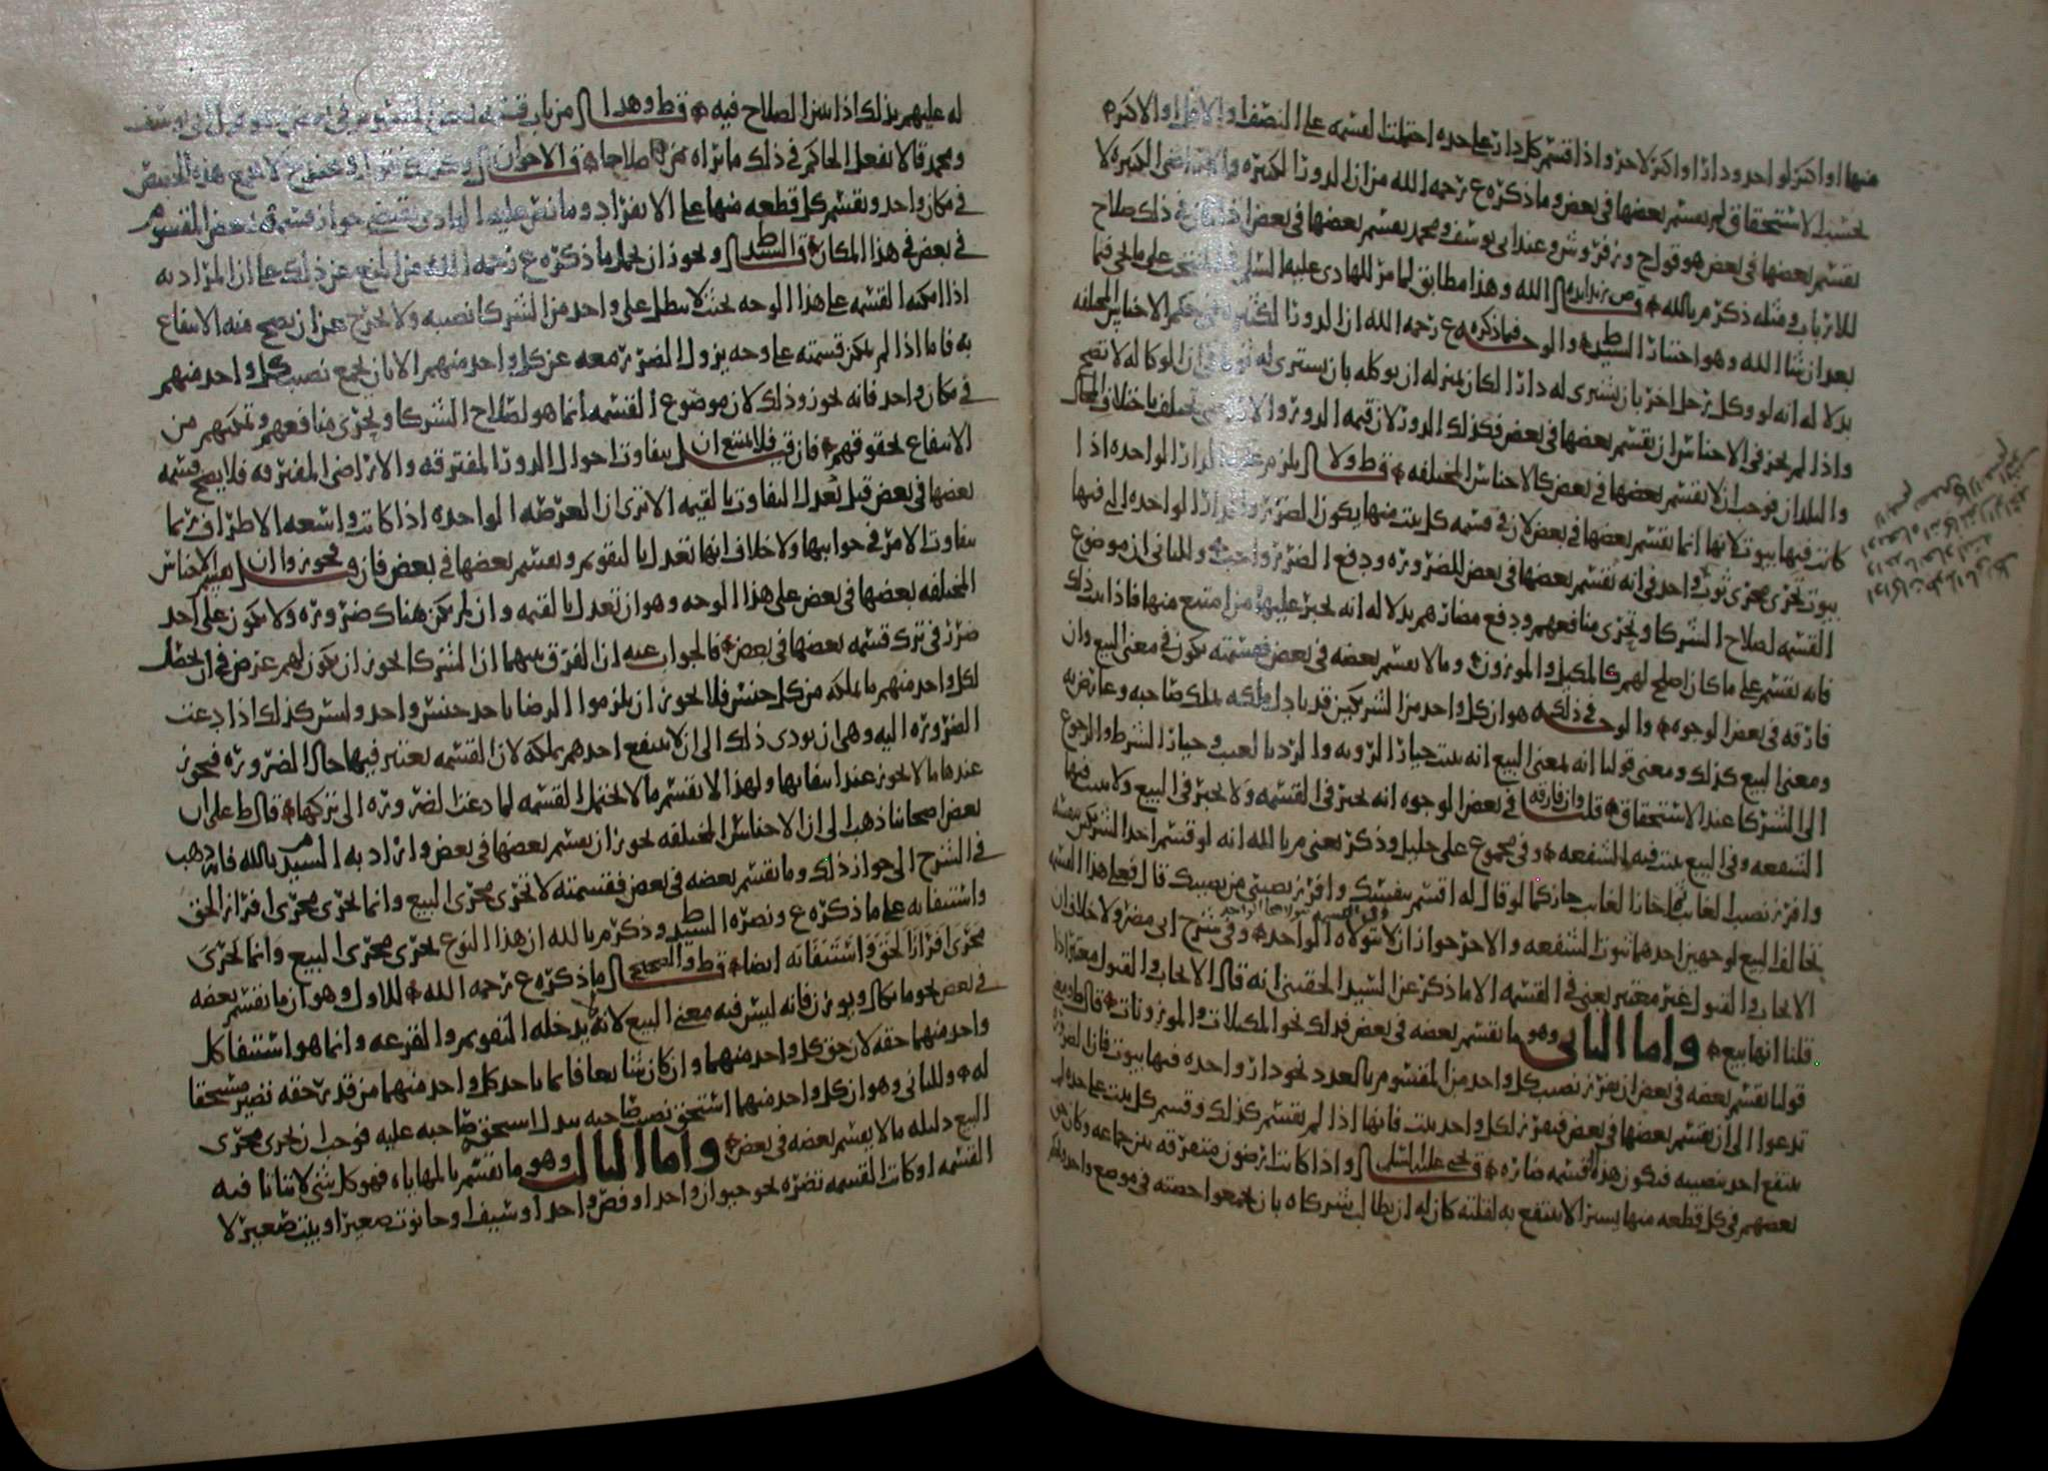 منها او اكثر لو احد ودارا او اكثر لاخر واذا قسم كل دار على حده احتملت القسمه على النصف او الاقل او الاكثر
بحسب الاستحقاق لم يقسم بعضها في بعض وما ذكره ع رحمه الله من ان الدور الكثيره والاراضي الكثيره لا
يقسم بعضها في بعض هو قول ح وزفر وش وعند ابي يوسف ومحمد يقسم بعضها في بعض اذا كان في ذلك صلاح
للارباب ومثله ذكر م بالله الله وهذا مطابق لما مر للهادي عليه السلم على ما يجي فيما
بعد ان شا الله وهو اختيار السيد ط والوجه فيما ذكره ع رحمه الله ان الدور الكثيره في حكم الاجناس المختلفه
بدلاله انه لو وكل رجل اخر بان يشترى له دارا لكان بمنزله ان يوكله بان يشترى له ثوبا في ان الوكاله لا تصح
واذا لم يجز في الاجناس ان يقسم بعضها في بعض فكذلك الدور لان قيمه الدور والاراضي تختلف باختلاف المحال
والبلدان فوجب ان لا يقسم بعضها في بعض كالاجناس المختلفه قال ط ولا يلزم الدار الواحده اذا
كانت فيها بيوت لانها انما يقسم بعضها في بعض لان في قسمه كل بيت منها يكون الضرر والدار الواحده التي فيها
بيوت تجرى مجرى ثوب واحد في انه يقسم بعضها في بعض للضروره ودفع الضرر واجب والثاني ان موضوع
القسمه لصلاح الشركا وتجرى منافعهم ودفع مضارهم بدلاله انه يجبر عليها من امتنع منها فاذا ثبت ذلك
فانه يقسم على ما كان اصلح لهم كالمكيل والموزون وما لا يقسم بعضه في بعض فقسمته يكون في معنى البيع وان
فارقه في بعض الوجوه والوجه في ذلك هو ان كل واحد من الشريكين قد بادل ملكه بملك صاحبه وعارض به
ومعنى البيع كذلك ومعنى قولنا انه بمعنى البيع انه يثبت خيار الرويه والرد بالعيب وخيار الشرط والرجوع
الى الشركا عند الاستحقاق قلت وان فارقه في بعض الوجوه انه يجبر في القسمه ولا يجبر في البيع ولا يثبت فيها
الشفعه وفي البيع يثبت فيه الشفعه وفي مجموع على خليل وذكر يعني م بالله انه لو قسم احد الشريكين
وافرز نصيب الغايب جاز كما لو قال له اقسم بنفسك وافرز نصيبي من نصيبك قال فعلى هذا القسمه
تخالف البيع لوجهين احدهما ثبوت الشفعه والاخر جواز ان لا يتولاه الواحد وفي شرح ابي مضر ولا خلاف ان
الايجاب والقبول غير معتبر يعني في القسمه الا ما ذكر عن السيد الحقيني انه قال الايجاب والقبول معتبر اذا
قلنا انها بيع واما الثاني وهو ما يقسم بعضه في بعض فذلك نحو المكيلات والموزونات قال ط
قولنا يقسم بعضه في بعض ان يفرز نصيب كل واحد من المقسوم بالعدد نحو دار واحده فيها بيوت فان الضروره
تدعوا الى ان يقسم بعضها في بعض فيفرز لكل واحد بيت فانها اذا لم يقسم كذلك وقسم كل بيت على حده لم
ينتفع احد بنصيبه فتكون هذه القسمه ضاره قال يحيى عليه السلم واذا كانت ارضون متفرقه بين جماعه وكان
بعضهم في كل قطعه منها يسيرا لا ينتفع به لقلته كان له ان يطالب شركاه بان يجمعوا حصته في موضع واحد
له عليهم بذلك اذا تبين الصلاح فيه قال ط وهذا من باب قسمه بعض المقسوم في
ومحمد قالا يفعل الحاكم في ذلك ما يراه صلاحا قال الاخوان
في مكان واحد ويقسم كل قطعه منها على الانفراد وما نص عليه الهادي يقتضي جواز قسمه بعض المقسوم
في بعض في هذا المكان قال السيد ط ويجوز ان يحمل ما ذكره ع رحمه الله من المنع عن ذلك على ان المراد به
اذا امكنه القسمه على هذا الوجه بحيث لا يبطل على واحد من الشركا نصيبه ولا يخرج عن ان يصح منه الانتفاع
به فاما اذا لم يمكن قسمته على وجه يزول الضرر معه عن كل واحد منهم الا بان يجمع نصيب كل واحد منهم
في مكان واحد فانه يجوز وذلك لان موضوع القسمه انما هو لصلاح الشركا وتجرى منافعهم وتمكنهم من
الانتفاع بحقوقهم فان قيل فلا يمتنع ان يتفاوت احوال الدور المفترقه والاراضي المفترقه فلا يصح قسمه
بعضها في بعض قيل يعدل التفاوت بالقيمه الا ترى ان العرصه الواحده اذا كانت واسعه الاطراف ربما
يتفاوت الامر في جوانبها ولا خلاف انها تعدل بالتقويم ويقسم بعضها في بعض فان قيل فجوزوا ان يقسم الاجناس
المختلفه بعضها في بعض على هذا الوجه وهو ان تعدل بالقيمه وان لم يكن هناك ضروره ولا يكون على احد
ضرر في ترك قسمه بعضها في بعض فالجواب عنه ان الفرق بينهما ان الشركا يجوز ان يكون لهم غرض في ان يحصل
لكل واحد منهم ما يملكه من كل جنس فلا يجوز ان يلزموا الرضا باحد جنس واحد وليس كذلك اذا دعت
الضروره اليه وهي ان يودي ذلك الى ان لا ينتفع احدهم بملكه لان القسمه يعتبر فيها حال الضروره فيجوز
عندها ما لا يجوز عند انتفايها ولهذا لا يقسم ما لا يحتمل القسمه لما دعت الضروره الى تركها قال ط على ان
بعض اصحابنا ذهب الى ان الاجناس المختلفه يجوز ان يقسم بعضها في بعض واراد به السيد م بالله فانه ذهب
في الشرح الى جواز ذلك وما يقسم بعضه في بعض فقسمته لا تجرى مجرى البيع وانما تجرى مجرى افراز الحق
واستيفايه على ما ذكره ع ونصره السيد ط وذكر م بالله ان هذا النوع تجرى مجرى البيع وانما تجرى
مجرى افراز الحق واستيفايه ايضا قال ط والصحيح ما ذكره ع رحمه الله للاول وهو ان ما يقسم بعضه
في بعض نحو ما يكال ويوزن فانه ليس فيه معنى البيع لانه يدخله التقويم والقرعه وانما هو استيفا كل
واحد منهما حقه لان حق كل واحد منهما وان كان شايعا فانما ياخذ كل واحد منهما من قدر حقه نصير مستحقا
له وللثاني وهو ان كل واحد منهما استحق نصيب صاحبه ببدل استحق صاحبه عليه فوجب ان يجرى مجرى
البيع دليله ما لا يقسم بعضه في بعض واما الثالث وهو ما يقسم بالمهاياه فهو كل شي لا يتاتا فيه
القسمه او كانت القسمه تضره نحو حيوان واحد او فص واحد او سيف او حانوت صغير او بيت صغير لا